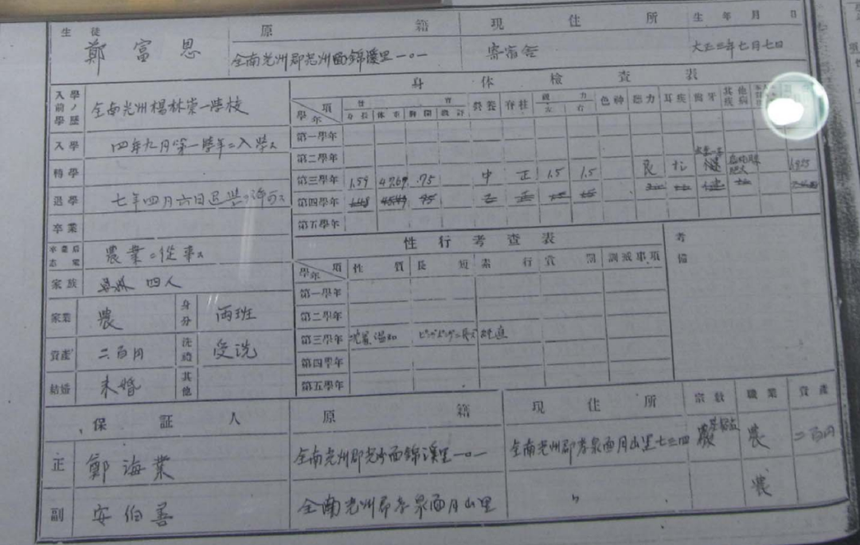 生徒
鄭富恩
原籍
全南光州郡光州面錦溪里一〇一
現住所
寄宿舍
生年月日
大正三年七月七日
入學前ノ學歷
全南光州楊林第一學校
入學
四年九月第一學年ニ入學ス
轉學
退學
七年四月六日退學ヲ許可ス
卒業
卒業後志望
農業ニ從事ス
家族
四人
家業
農
身分
兩班
資產
二百円
洗禮
受洗
結婚
未婚
其他
身體檢查表
項
學年
身長 体重 胸圍
營養 脊柱
左 右
色神 聽力 耳疾 齒牙
第一學年
第二學年
第三學年 1.59 47.69 .75 中 正 1.5 1.5 良
第四學年
第五學年
性行考查表
項
學年
性質 長短 素行 賞罰 訓戒事項
考備
第一學年
第二學年
第三學年 溫和
第四學年
第五學年
保証人
原籍
現住所
宗教 職業 資產
正
鄭海業
全南光州郡光州面錦溪里一〇一
全南光州郡孝泉面月山里七三四
農
二百円
副
安伯善
全南光州郡孝泉面月山里
〃
農